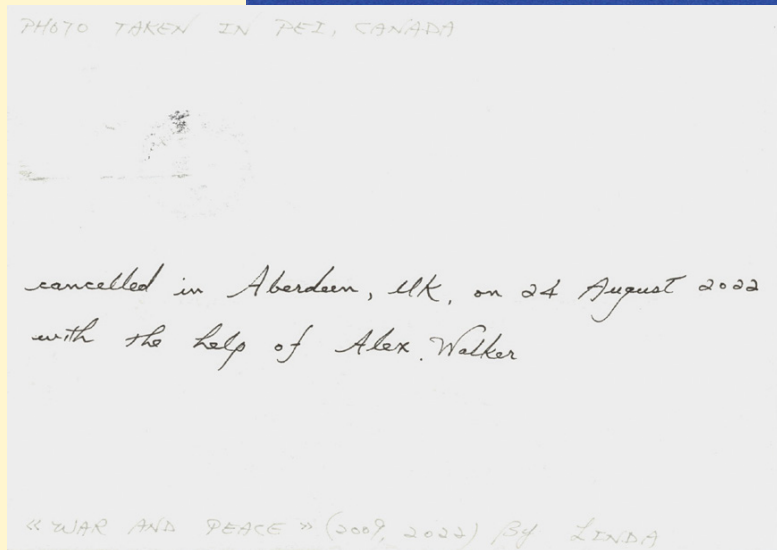 PHOTO TAKEN IN PEI, CANADA
cancelled in Aberdeen, UK, on 24 August 2022
with the help of Alex Walker
« WAR AND PEACE » (2009, 2022) By LINDA